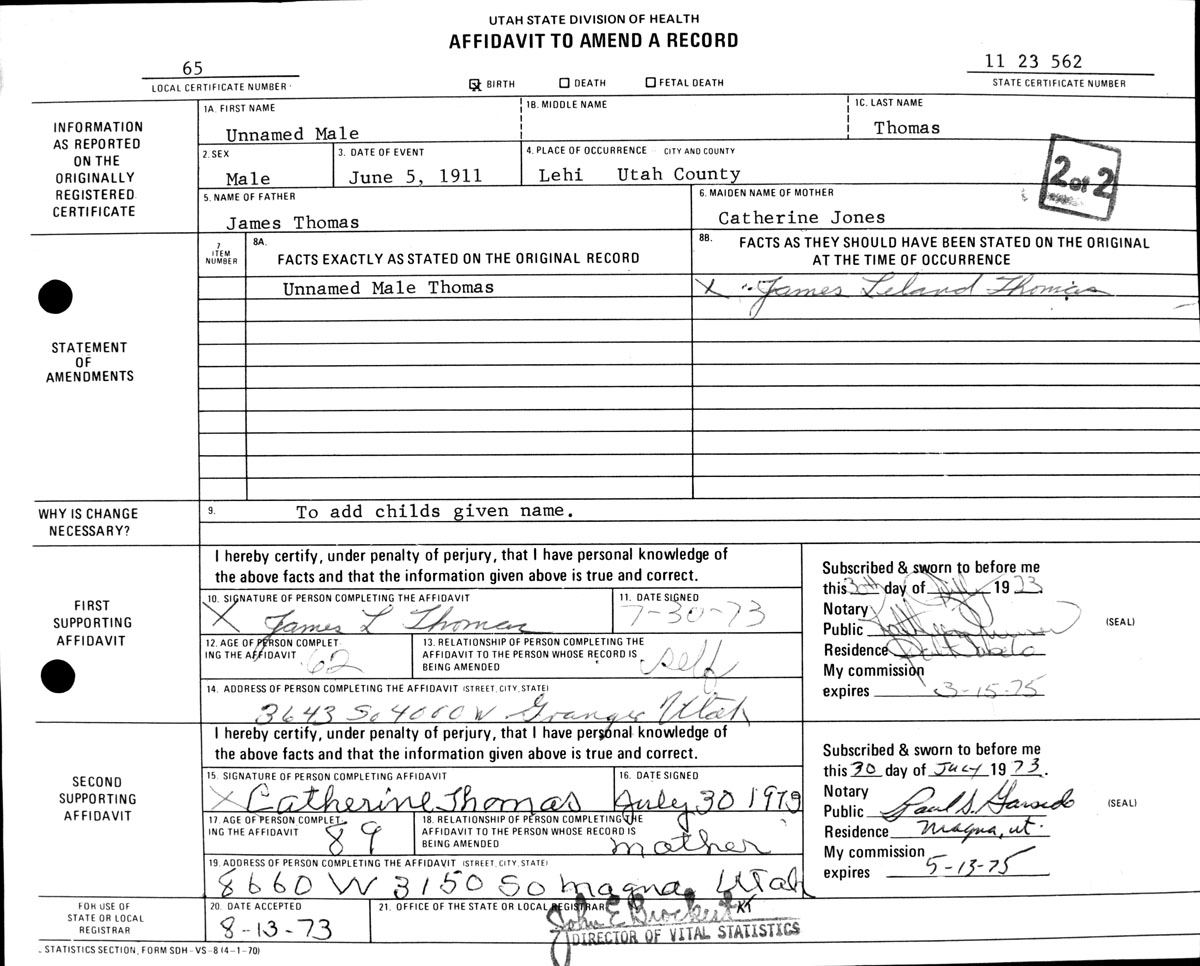 UTAH STATE DIVISION OF HEALTH
AFFIDAVIT TO AMEND A RECORD
65
LOCAL CERTIFICATE NUMBER
BIRTH DEATH FETAL DEATH
11 23 562
STATE CERTIFICATE NUMBER
INFORMATION
AS REPORTED
ON THE
ORIGINALLY
REGISTERED
CERTIFICATE
1A. FIRST NAME 1B. MIDDLE NAME 1C. LAST NAME
Unnamed Male Thomas
2. SEX 3. DATE OF EVENT 4. PLACE OF OCCURRENCE CITY AND COUNTY
Male June 5, 1911 Lehi Utah County
2 of 2
5. NAME OF FATHER 6. MAIDEN NAME OF MOTHER
James Thomas Catherine Jones
STATEMENT
OF
AMENDMENTS
7
ITEM
NUMBER
8A.
FACTS EXACTLY AS STATED ON THE ORIGINAL RECORD
8B. FACTS AS THEY SHOULD HAVE BEEN STATED ON THE ORIGINAL
AT THE TIME OF OCCURRENCE
Unnamed Male Thomas X James Leland Thomas
WHY IS CHANGE
NECESSARY?
9. To add childs given name.
FIRST
SUPPORTING
AFFIDAVIT
I hereby certify, under penalty of perjury, that I have personal knowledge of
the above facts and that the information given above is true and correct.
10. SIGNATURE OF PERSON COMPLETING THE AFFIDAVIT 11. DATE SIGNED
X James L Thomas 7-30-73
12. AGE OF PERSON COMPLET
ING THE AFFIDAVIT 62
13. RELATIONSHIP OF PERSON COMPLETING THE
AFFIDAVIT TO THE PERSON WHOSE RECORD IS
BEING AMENDED self
14. ADDRESS OF PERSON COMPLETING THE AFFIDAVIT (STREET, CITY, STATE)
3643 So 4000 W Granger Utah
Subscribed & sworn to before me
this 30th day of July 1973
Notary
Public (SEAL)
Residence
My commission
expires 3-15-75
SECOND
SUPPORTING
AFFIDAVIT
I hereby certify, under penalty of perjury, that I have personal knowledge of
the above facts and that the information given above is true and correct.
15. SIGNATURE OF PERSON COMPLETING AFFIDAVIT 16. DATE SIGNED
X Catherine Thomas July 30 1973
17. AGE OF PERSON COMPLET
ING THE AFFIDAVIT 89
18. RELATIONSHIP OF PERSON COMPLETING THE
AFFIDAVIT TO THE PERSON WHOSE RECORD IS
BEING AMENDED mother
19. ADDRESS OF PERSON COMPLETING THE AFFIDAVIT (STREET, CITY, STATE)
8660 W 3150 So magna, Utah
Subscribed & sworn to before me
this 30 day of July 1973.
Notary
Public Paul S. (SEAL)
Residence Magna, ut.
My commission
expires 5-13-75
FOR USE OF
STATE OR LOCAL
REGISTRAR
20. DATE ACCEPTED 21. OFFICE OF THE STATE OR LOCAL REGISTRAR
8-13-73 John E Brockert
DIRECTOR OF VITAL STATISTICS
STATISTICS SECTION, FORM SDH-VS-8 (4-1-70)